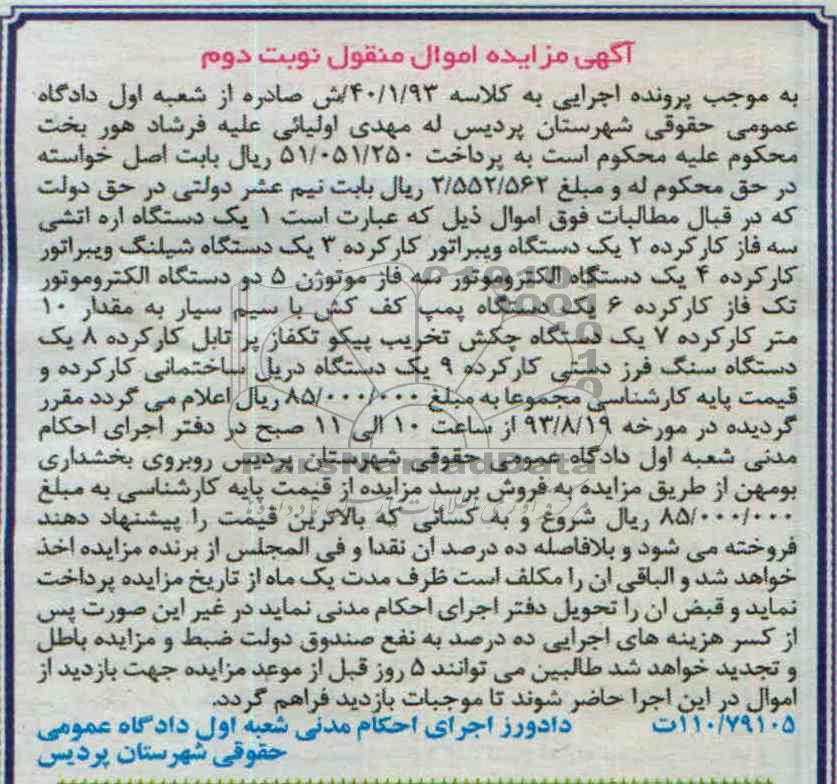 آگهی مزایده اموال منقول نوبت دوم
به موجب پرونده اجرایی به کلاسه ۴۰/۱/۹۳/ش صادره از شعبه اول دادگاه
عمومی حقوقی شهرستان پردیس له مهدی اولیائی علیه فرشاد هور بخت
محکوم علیه محکوم است به پرداخت ۵۱/۰۵۱/۲۵۰ ریال بابت اصل خواسته
در حق محکوم له و مبلغ ۲/۵۵۲/۵۶۲ ریال بابت نیم عشر دولتی در حق دولت
که در قبال مطالبات فوق اموال ذیل که عبارت است ۱ یک دستگاه اره اتشی
سه فاز کارکرده ۲ یک دستگاه ویبراتور کارکرده ۳ یک دستگاه شیلنگ ویبراتور
کارکرده ۴ یک دستگاه الکتروموتور سه فاز موتوژن ۵ دو دستگاه الکتروموتور
تک فاز کارکرده ۶ یک دستگاه پمپ کف کش با سیم سیار به مقدار ۱۰
متر کارکرده ۷ یک دستگاه چکش تخریب پیکو تکفاز پر تابل کارکرده ۸ یک
دستگاه سنگ فرز دستی کارکرده ۹ یک دستگاه دریل ساختمانی کارکرده و
قیمت پایه کارشناسی مجموعا به مبلغ ۸۵/۰۰۰/۰۰۰ ریال اعلام می گردد مقرر
گردیده در مورخه ۹۳/۸/۱۹ از ساعت ۱۰ الی ۱۱ صبح در دفتر اجرای احکام
مدنی شعبه اول دادگاه عمومی حقوقی شهرستان پردیس روبروی بخشداری
بومهن از طریق مزایده به فروش برسد مزایده از قیمت پایه کارشناسی به مبلغ
۸۵/۰۰۰/۰۰۰ ریال شروع و به کسانی که بالاترین قیمت را پیشنهاد دهند
فروخته می شود و بلافاصله ده درصد ان نقدا و فی المجلس از برنده مزایده اخذ
خواهد شد و الباقی ان را مکلف است ظرف مدت یک ماه از تاریخ مزایده پرداخت
نماید و قبض ان را تحویل دفتر اجرای احکام مدنی نماید در غیر این صورت پس
از کسر هزینه های اجرایی ده درصد به نفع صندوق دولت ضبط و مزایده باطل
و تجدید خواهد شد طالبین می توانند ۵ روز قبل از موعد مزایده جهت بازدید از
اموال در این اجرا حاضر شوند تا موجبات بازدید فراهم گردد.
۱۱۰/۷۹۱۰۵ت دادورز اجرای احکام مدنی شعبه اول دادگاه عمومی
حقوقی شهرستان پردیس
ParsNamadData